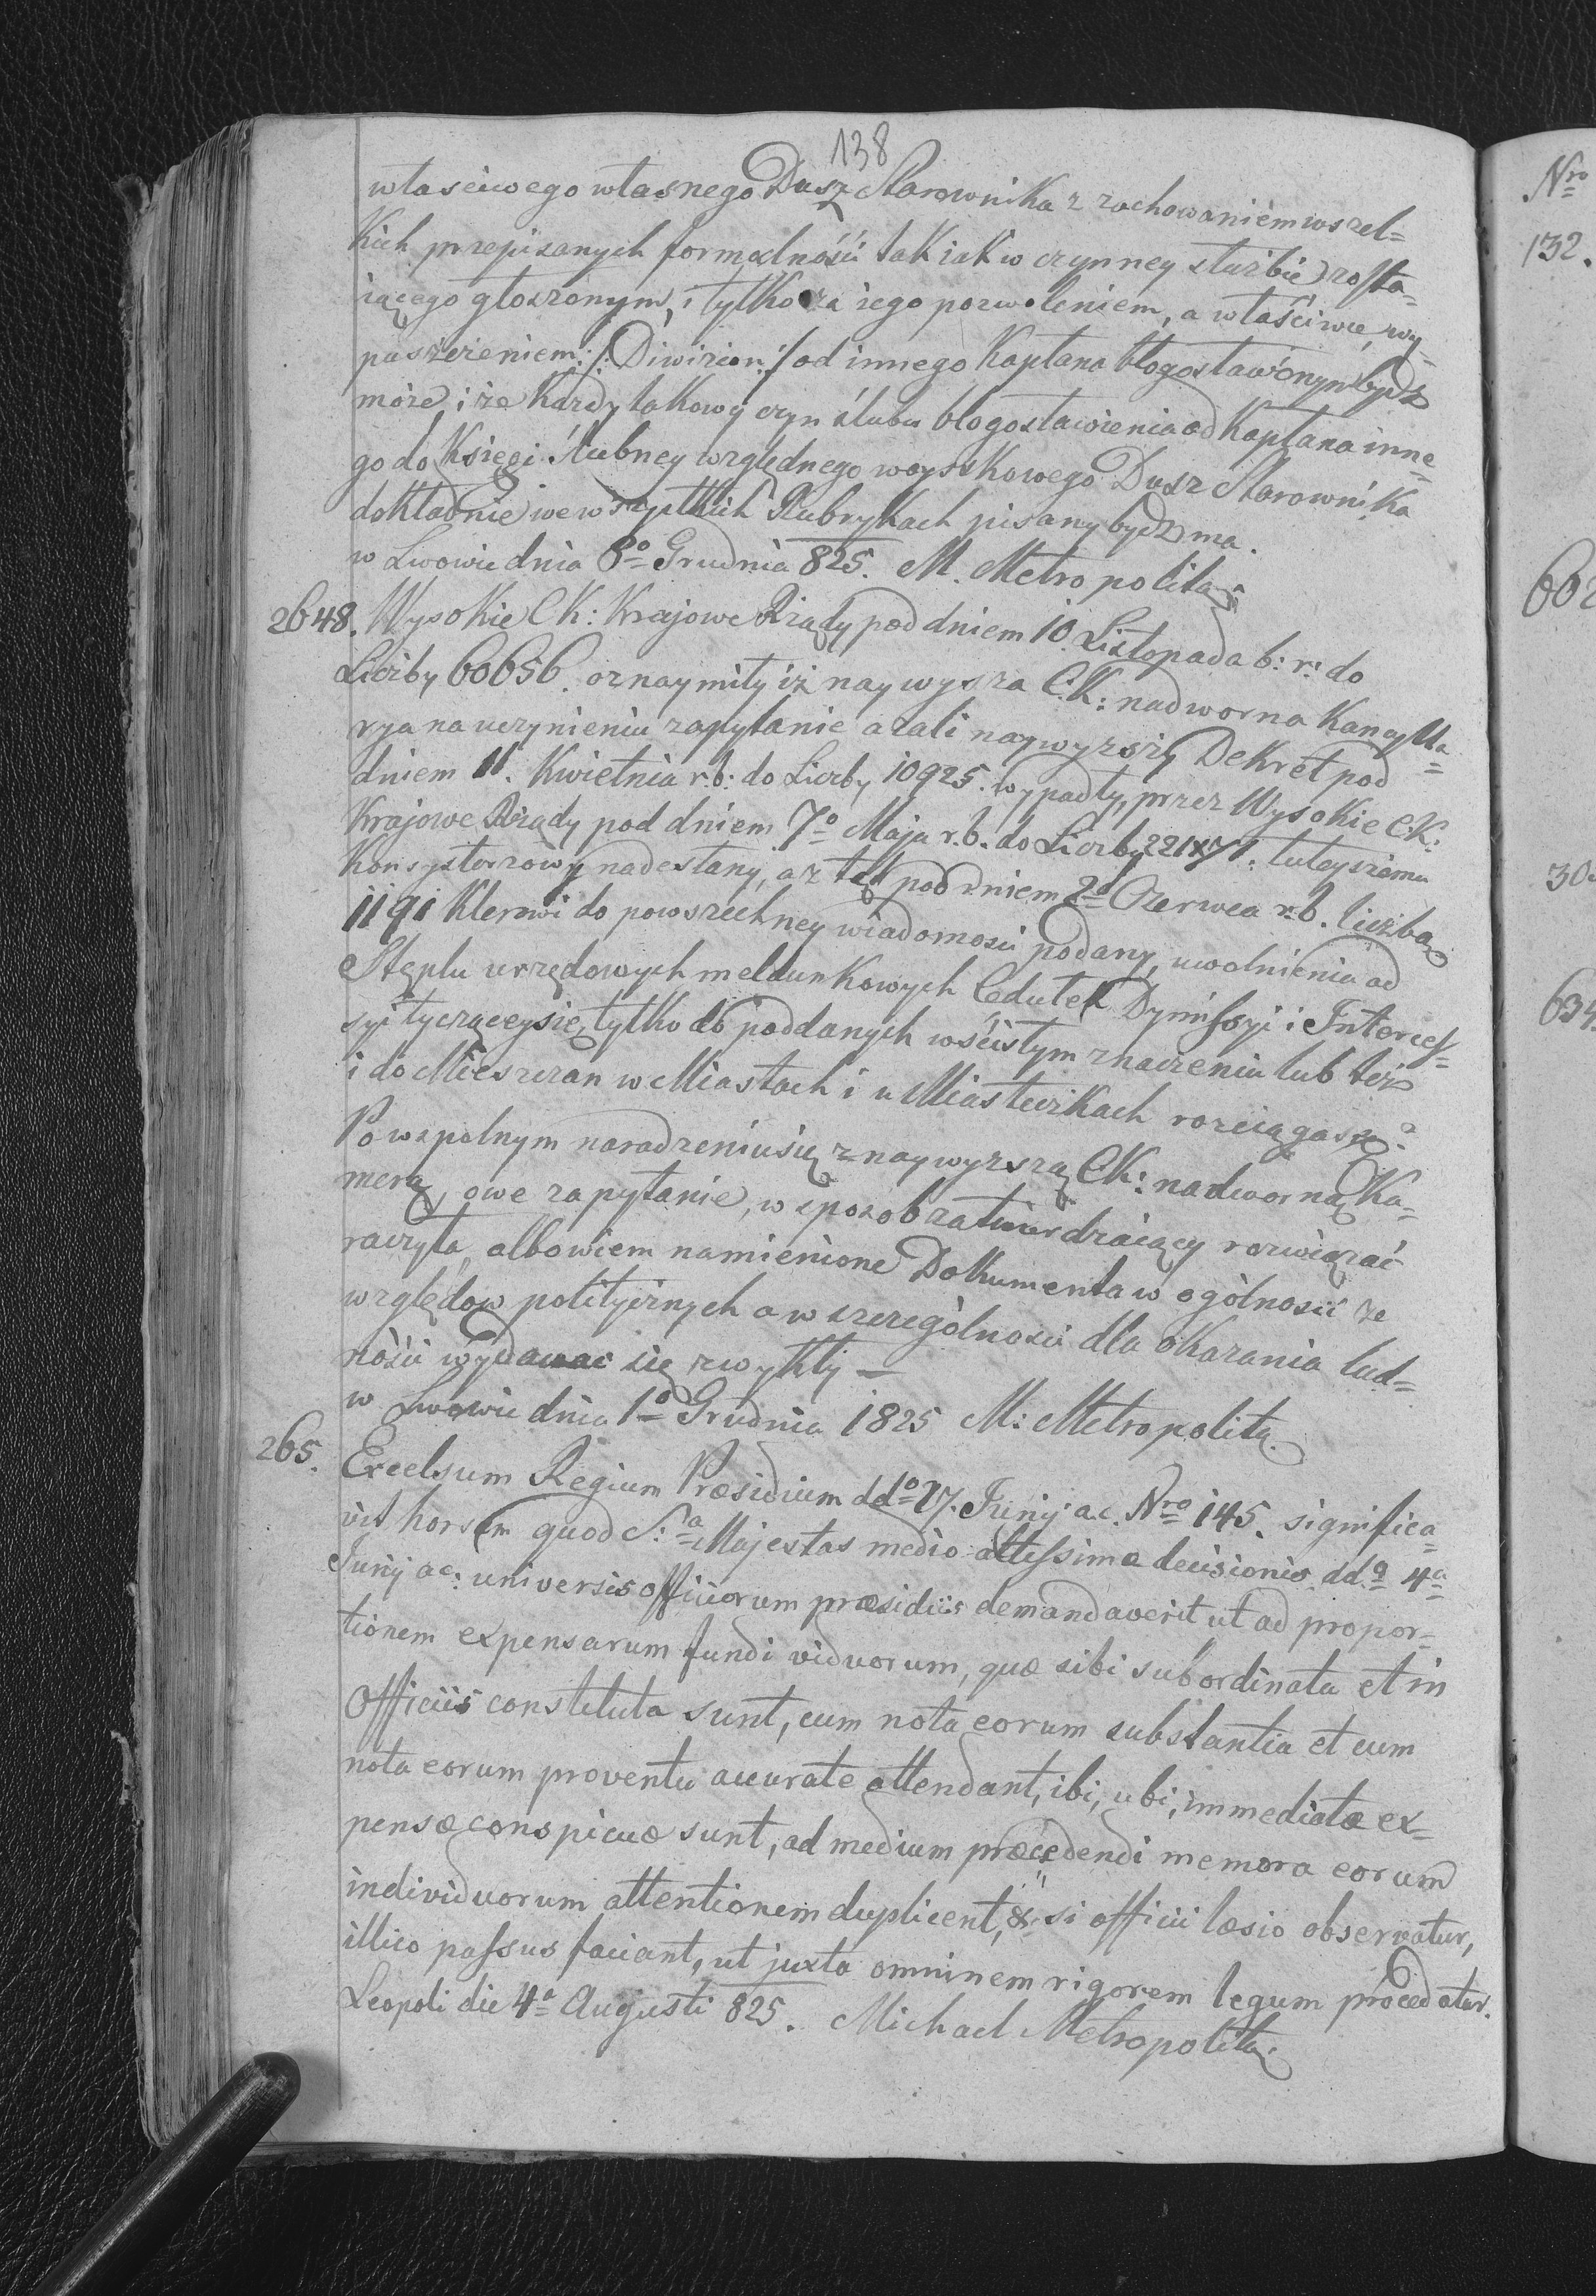 138
własciwego własnego Dusz Starownika z zachowaniem wszel=
kich przepisanych formalnośii tak iak w czynney służbie zosta=
iącego głoszonym, i tylko za iego pozwoleniem, a właściwie, wy=
puszczeniem /: Diwizion :/ od innego Kapłana błogosławionym bydz
może, i że każdy takowy czyn ślubu błogosławienia od Kapłana inne
go do Księgi Slubney względnego woyskowego Dusz Starownika
dokładnie we wszystkich Rubrykach pisany bydz ma.
w Lwowie dnia 8º Grudnia 825. M. Metropolita
2648. Wysokie C K: Krajowe Rządy pod dniem 10. Listopada b: r: do
Liczby 60656. oznaymiły iż naywysza C.K: nadworna Kancylla=
rya na uczynieniu zapytanie azali naywyższy Dekret pod
dniem 11. Kwietnia r.b: do Liczby 10925. wypadły, przez Wysokie C.K:
Krajowe Rządy pod dniem 7º Maja r.b. do Liczby tuteyszemu
Konsystorzowy nadesłany, a z tąd pod dniem 2d Czerwca r.b. liczbą
1191 Klerowi do powszechney wiadomosci podany, uwolnienia od
Stęplu urzędowych meldunkowych Cedułek Dymissyi i Interces=
syi tyczącey się, tylko do poddanych w ścisłym znaczeniu lub też
i do Mieszczan w Miastach i w Miasteczkach rozciąga się?
Po wspolnym naradzeniu się z naywyzszą C.K: nadworną Ka=
merą, owe zapytanie, w sposob zatwierdzaiący rozwiązać
raczyła, albowiem namienione Dokumenta w ogòlnosci ze
względow politycznych a w szczegòlnosci dla okazania lud=
nòści wydawać się zwykły —
w Lwowie dnia 1º Grudnia 1825 M: Metropolita.
265. Excelsum Regium Præsidium ddº 27. Junij a.c. Nro 145. significa=
vit horsum quod S:a Majestas medio altessimæ decisionis dd.º 4ª
Junij ac: universis officiorum præsidiis demandaverit ut ad propor=
tionem expensarum fundi viduorum, quæ sibi subordinata et in
Officiis constituta sunt, cum nota eorum substantia et cum
nota eorum proventu accurate attendant, ibi, ubi, immediatæ ex=
pensæ conspicuæ sunt, ad medium præcedendi memora eorum
individuorum attentionem duplicent, & si officii læsio observatur,
illico passus faciant, ut juxta omninem rigorem legum procedatur.
Leopoli die 4ª Augusti 825. Michael Metropolita.
Nro
132.